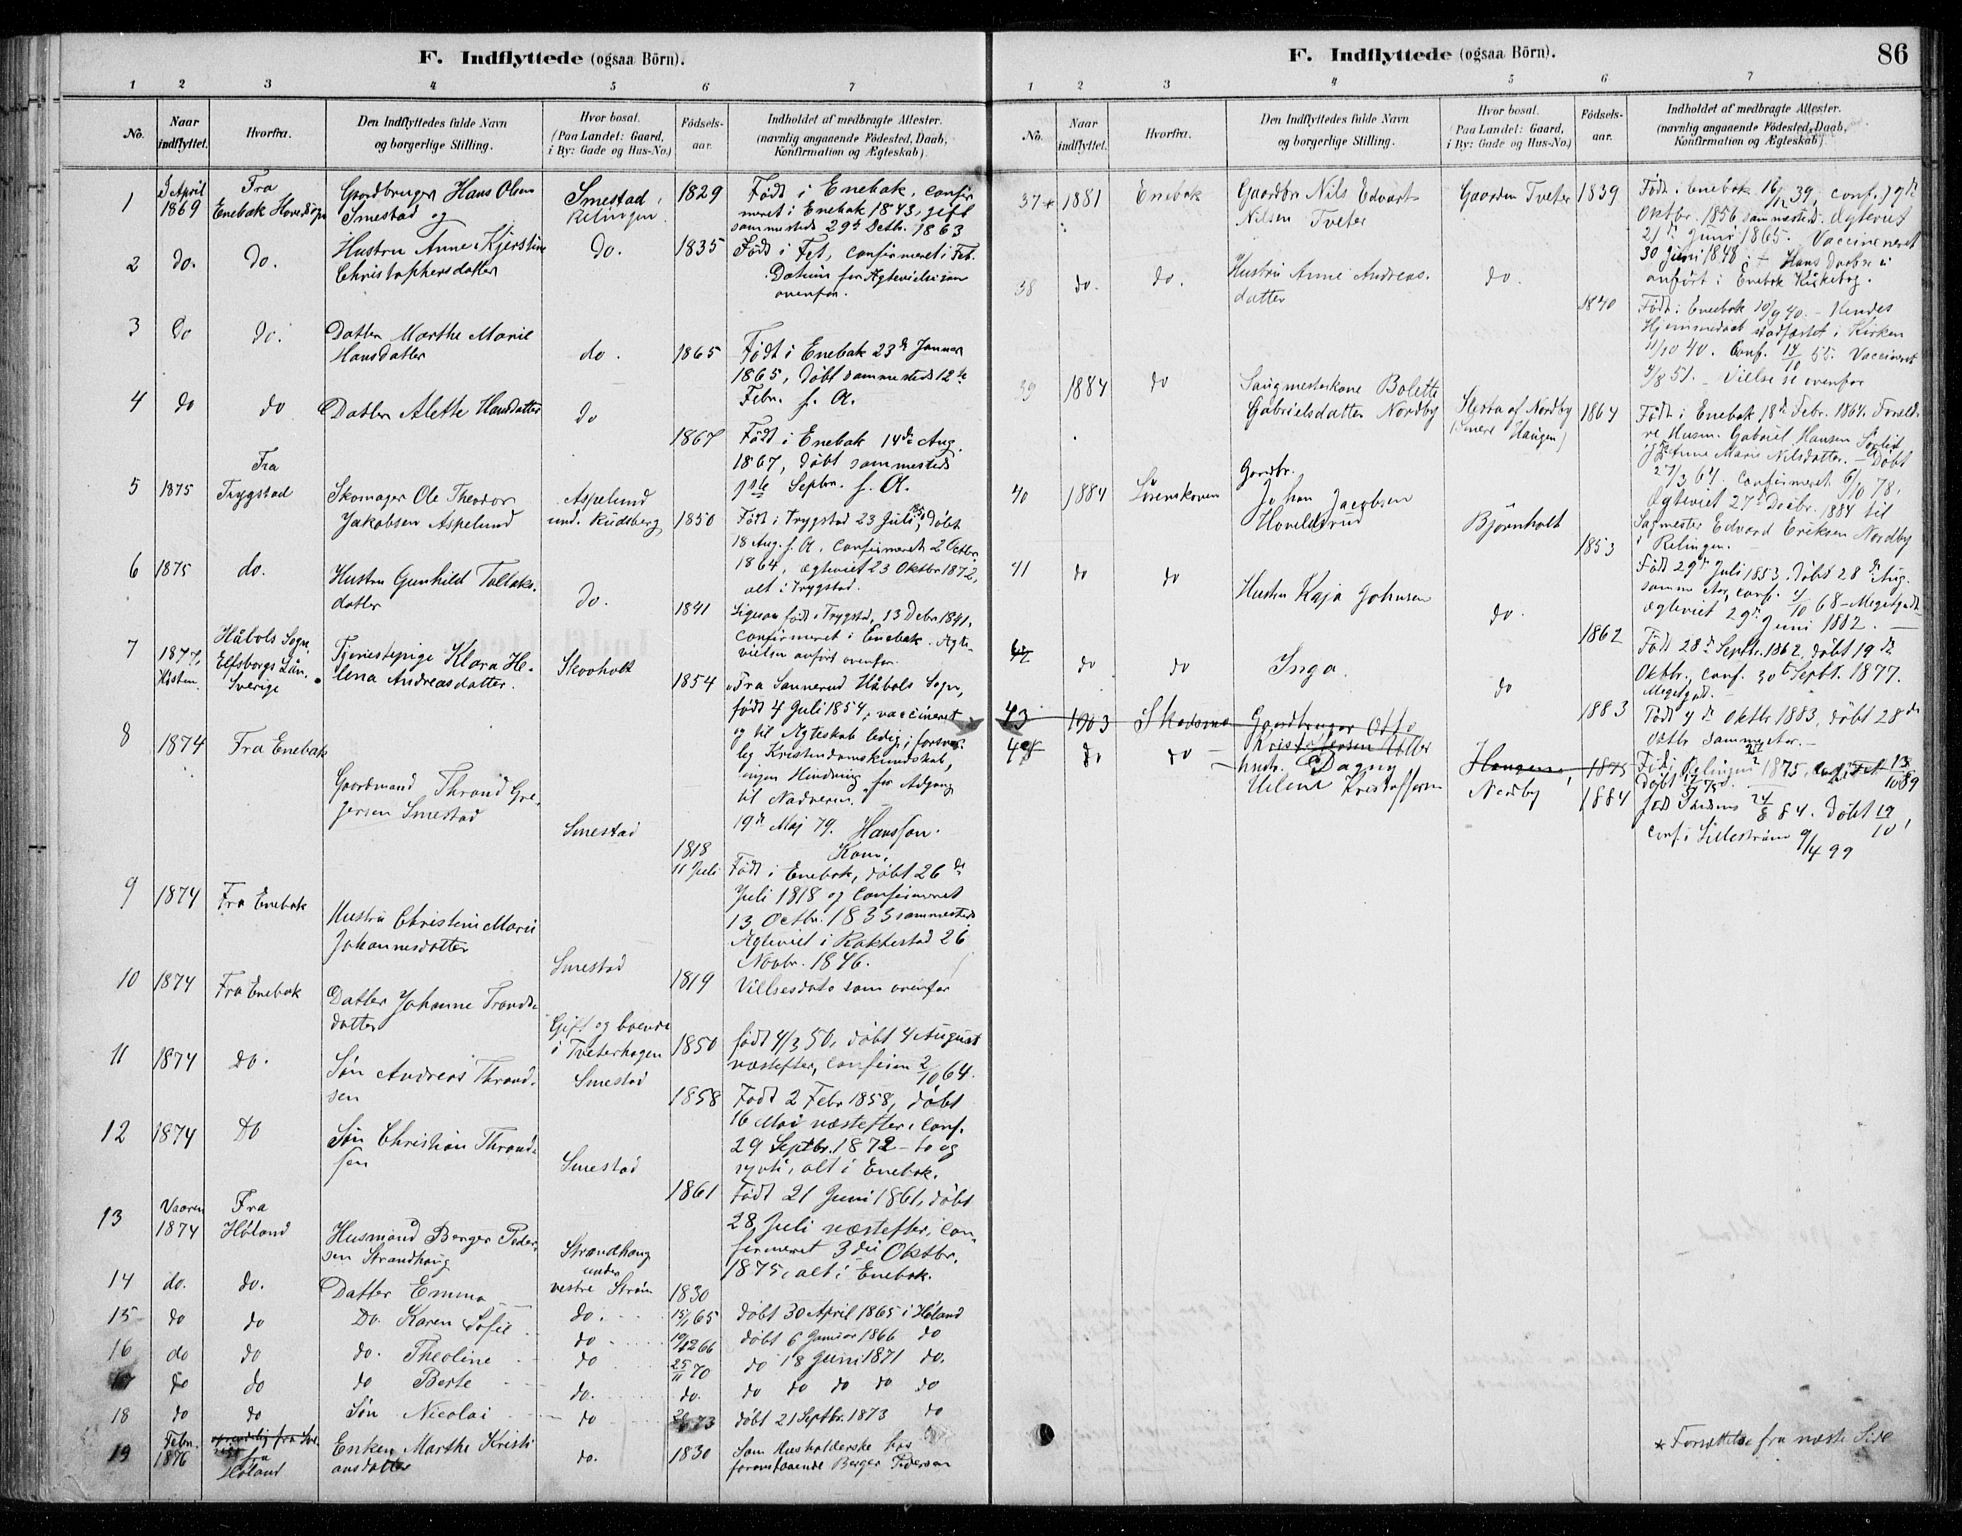 F. Indflyttede (ogsaa Börn).
1 2 3 4 5 6 7
No.
Naar indflyttet.
Hvorfra.
Den Indflyttedes fulde Navn og borgerlige Stilling.
Hvor bosat. (Paa Landet: Gaard, i By: Gade og Hus-No.)
Fødsels-aar.
Indholdet af medbragte Attester. (navnlig angaaende Födested, Daab, Konfirmation og Ægteskab).
1 I April 1869 Fra Enebak Hovedsogn Gaardbruger Hans Olsen Smestad og Smestad i Relingen 1829 Født i Enebak, confir
meret i Enebak 1843, gift
sammesteds 29de Octb. 1863
2 do. do. Hustru Anne Kjerstine Christophersdatter do. 1835 Født i Fet, confirmeret i Fet.
Datum for Ægtevielsen som
ovenfor.
3 Do do. Datter Marthe Marie Hansdatter do. 1865 Født i Enebak 23de Januar
1865, døbt sammesteds 12te
Febr. s. A.
4 do do Datter Alette Hansdatter do 1867 Født i Enebak 14de Aug.
1867, døbt sammesteds
1ste Septbr. s. A.
5 1875 Fra Trygstad Skomager Ole Theodor Jakobsen Aspelund Aspelund und. Rudsberg 1850 Født i Trygstad 23 Juli, døbt
18 Aug. s. A. confirmeret 2 Octbr.
1864, ægteviet 23 Oktbr 1872,
alt i Trygstad.
6 1875 do. Hustru Gunhild Tollaks-
datter do. 1841 Ligesom født i Trygstad, 13 Debr 1841,
confirmeret i Enebak. Ægte-
vielsen anført ovenfor.
7 1877, Høsten. Håbols Sogn, Elfsborgs Län, Sverige Tjenestepige Klara He-
lena Andreasdatter. Skovholt 1854 Fra Sannerud Håbols Sogn,
født 4 Juli 1854, vaccineret
og til Ægteskab ledig, forsvar-
lig Kristendomskundskab,
ingen Hindring for Adgang
til Nadveren.
19de Maj 79. Hansson.
8 1874 Fra Enebak Gaardmand Thrond Gre-
gersen Smestad Smestad 1818 11 Juli Født i Enebak, døbt 26de
Juli 1818 og confirmeret
13 Octbr. 1833 sammesteds
Ægteviet i Rakkestad 26
Novbr. 1846.
9 1874 Fra Enebak Hustru Christine Marie
Johannesdatter Smestad 1819 Vielsesdato som ovenfor
10 1874 Fra Enebak Datter Johanne Tronds-
datter Gift og boende i Tveterhagen 1850 født 4/3 50, døbt 4 August
næstefter, confirm 2/10 64.
11 1874 do. Søn Andreas Thrond-
sen Smestad 1858 Født 2 Febr 1858, døbt
16 Mai næstefter, conf.
29 Septbr. 1872 - to og
sytti, alt i Enebak.
12 1874 Do Søn Christian Thrond-
sen Smestad 1861 Født 21 Juni 1861, døbt
28 Juli næstefter, con-
firmeret 3die Oktbr.
1875, alt i Enebak.
13 Vaaren 1874 Fra Høland Husmand Berger Peder-
sen Strandhaug Strandhaug under vestre Strøm 1830
14 do. do. Datter Emma do. 15/1 65 døbt 30 April 1865 i Høland
15 do do Do. Karen Sofie do 66 døbt 6 Januar 1866 do
16 do do do. Theoline do 25/11 70 do 18 Juni 1871 do.
do do do Berte do. do. do do do do do
18 do do Søn Nicolai do 73 døbt 21 Septbr. 1873 do
19 Febr. 1876 oprindelig fra Sve- fra Høland Enken Marthe Kristi
ansdatter do. 1830 Som Husholderske hos
foranstaaende Berger Pedersen
F. Indflyttede (ogsaa Börn).
86
1 2 3 4 5 6 7
No.
Naar indflyttet.
Hvorfra.
Den Indflyttedes fulde Navn og borgerlige Stilling.
Hvor bosat. (Paa Landet: Gaard, i By: Gade og Hus-No.)
Fødsels-aar.
Indholdet af medbragte Attester. (navnlig angaaende Födested, Daab, Konfirmation og Ægteskab).
37* 1881 Enebak Gaardbr Nils Edvart
Nilsen Tveter Gaarden Tveter 1839 Født i Enebak 16/12 39, conf. 19de
Oktbr. 1856 sammesteds. Ægteviet
21de Juni 1865. Vaccineret
30 Juni 1848
anført i Enebak Kirkebog.
38 do. do. Hustru Anne Andreas-
datter do. 1840 Født i Enebak 10/9 40. - Hendes
Hjemmedaab stadfæstet i Kirken
11/10 40. Conf. 14/10 55. Vaccineret
9/8 51. - Vielse se ovenfor
39 1884 do Saugmesterkone Bolette
Gabrielsdatter Nordby Nordby (Smed Haugen) 1864 Født i Enebak 18de Febr. 1864. Foreld-
re Husm. Gabriel Hansen
og Anne Marie Nilsdatter. - Døbt
27/3 64. Confirmeret 6/10 78.
Ægteviet 27de Decbr. 1884 til
Sagmester Edvard Eriksen Nordby
i Relingen.
40 1884 Lørenskoven Gardbr.
Johan Jacobsen
Bjørnholt 1853 Født 29de Juli 1853. Døbt 28de Aug.
samme Aar, conf. 4/10 68 - Megetgodt
ægteviet 29de Juni 1882.
41 do do Hustru Kaja Johnsen do. 1862 Født 28de Septbr. 1862, døbt 19de
Oktbr., conf. 30te Septbr. 1877.
Megetgodt.
42 do do Inga. do 1883 Født 4de Oktbr 1883, døbt 28de
Oktbr samme Aar. -
43 1903 Skedsmo Gaardbruger Otto
Kristoffersen Haugen, 1875 Født i Relingen 1875, conf. i Fet 13/10 89
døbt
44 do do - hustr. Dagny
Helene Kristoffersen Nordby 1884 født Skedsmo 24/8 84. Døbt 19/10,
conf. i Lillestrøm 9/4 99
* Forsættelse fra næste Side